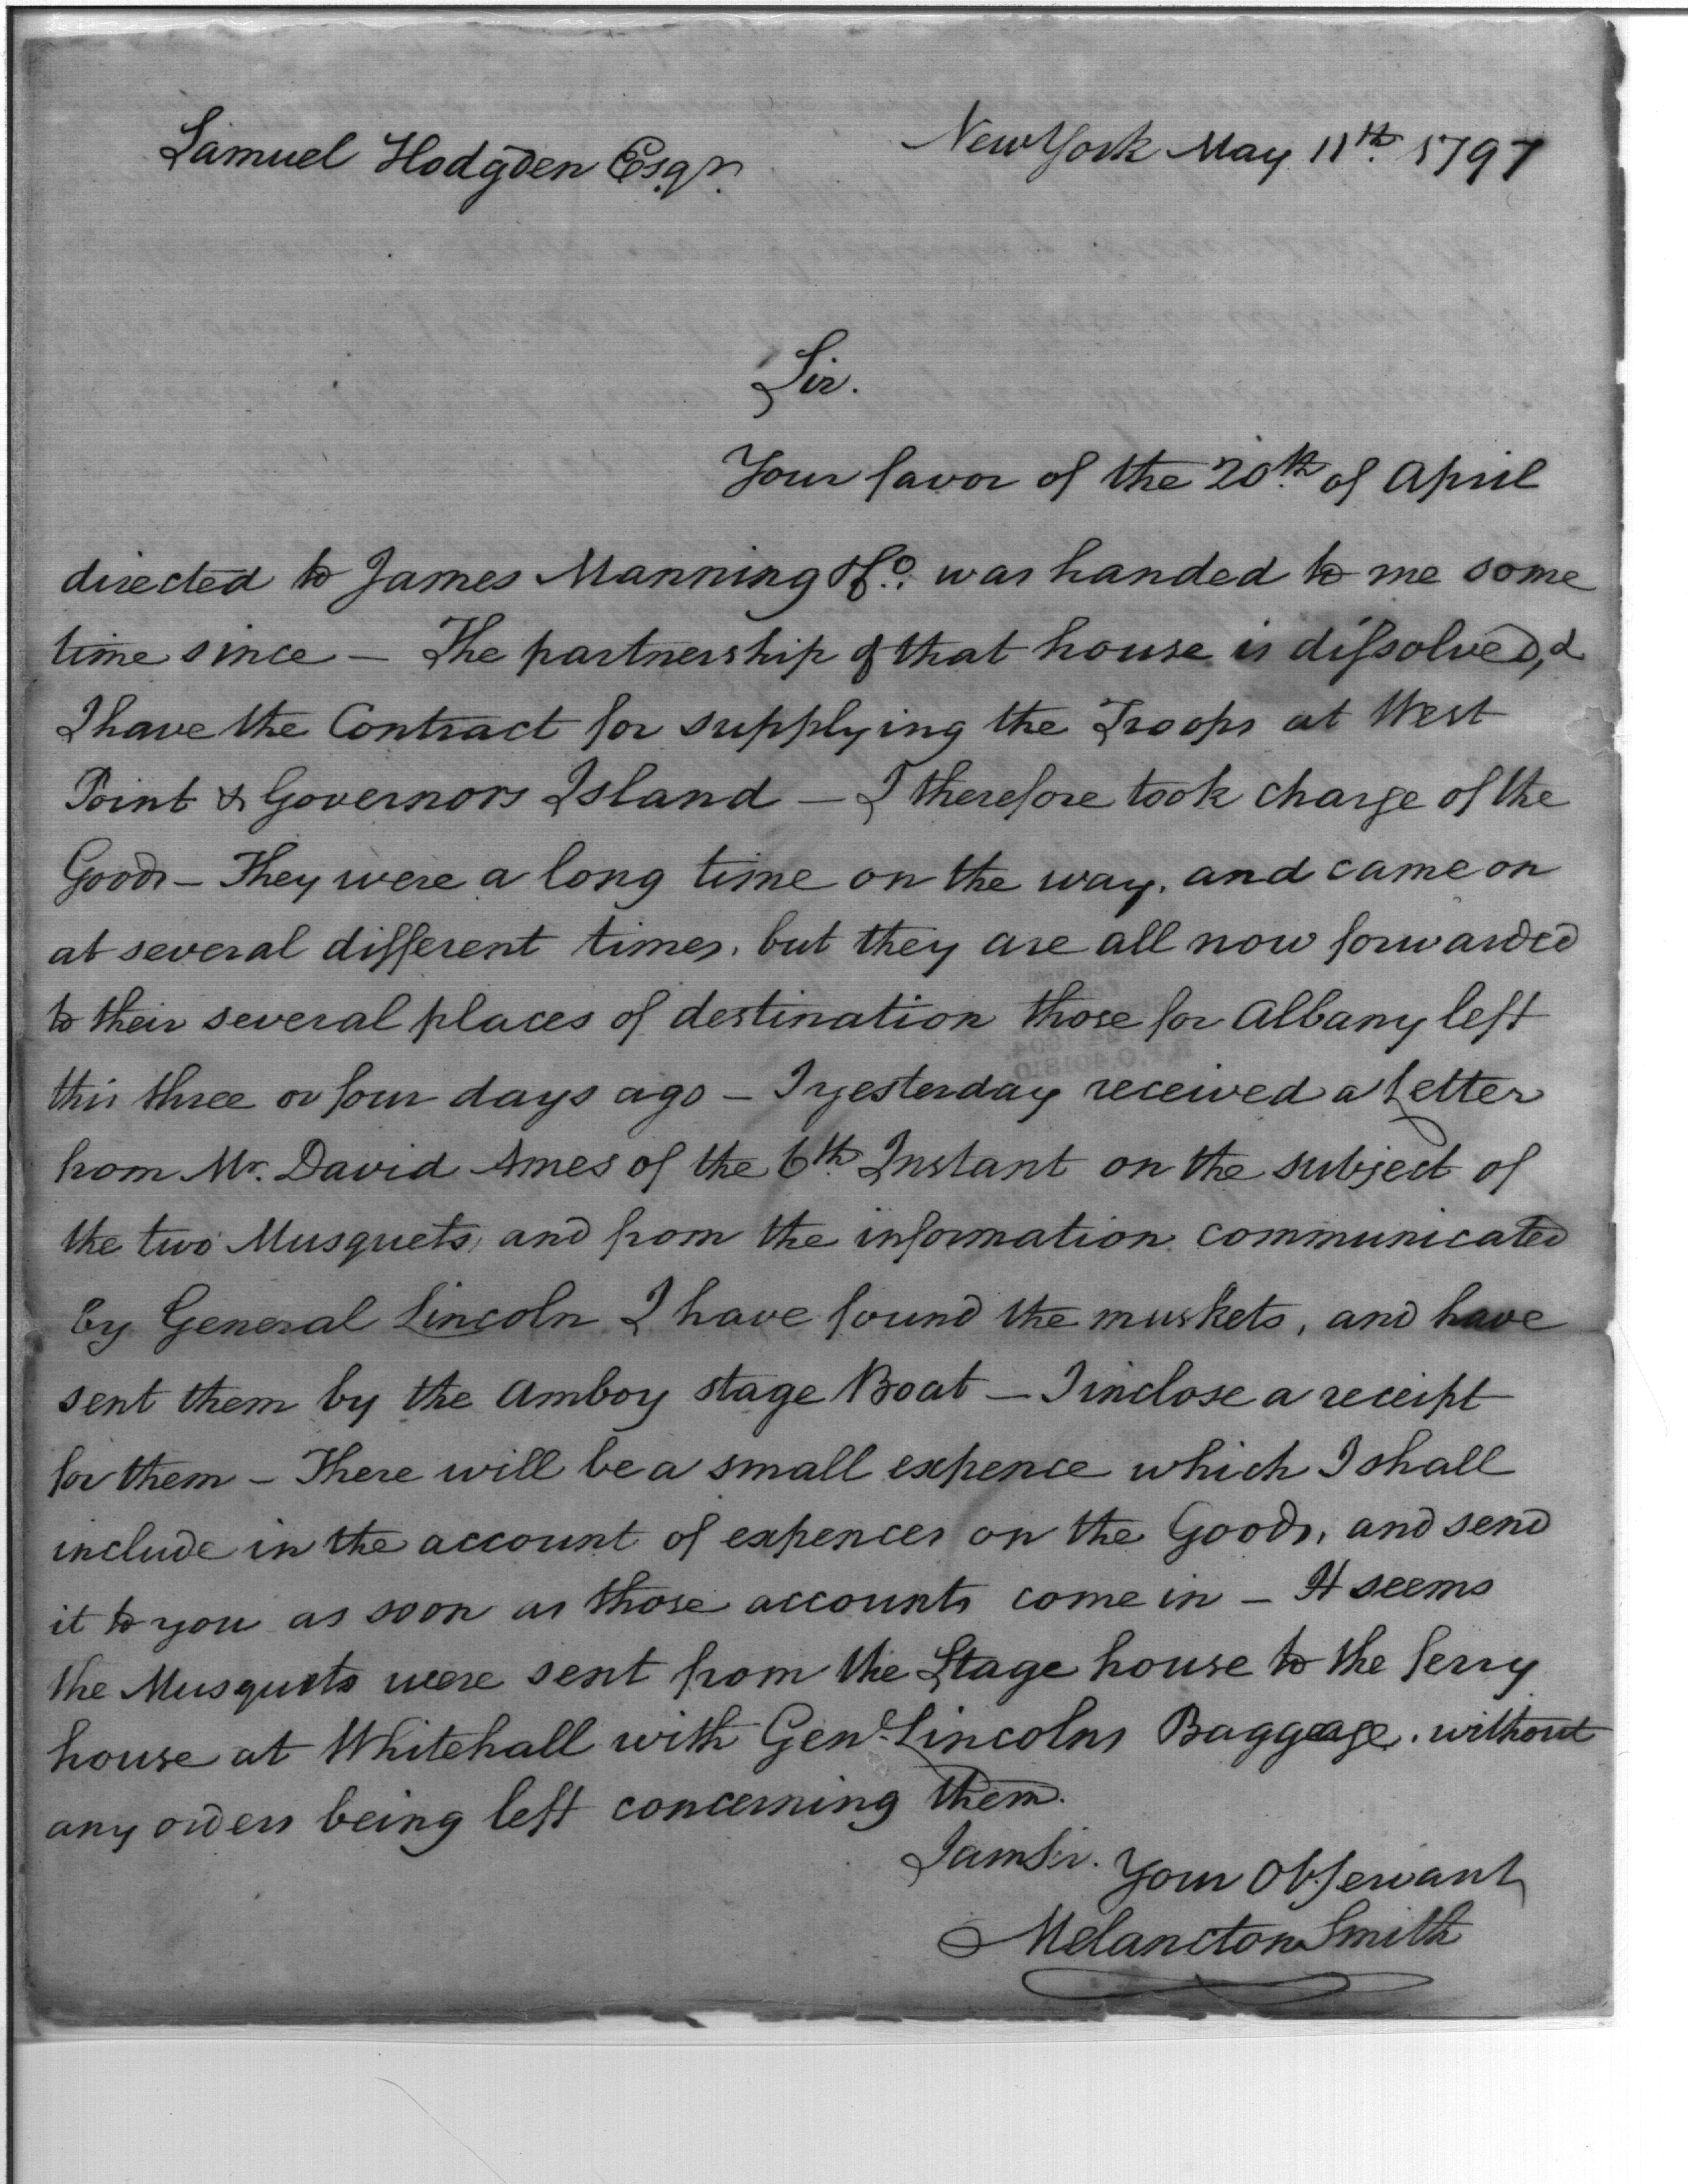 Samuel Hodgden Esqr.
New York May 11th. 1797
Sir.
Your favor of the 20th. of April
directed to James Manning & Co. was handed to me some
time since — The partnership of that house is dissolved, &
I have the Contract for supplying the Troops at West
Point & Governors Island — I therefore took charge of the
Goods — They were a long time on the way, and came on
at several different times, but they are all now forwarded
to their several places of destination those for Albany left
this three or four days ago — I yesterday received a Letter
from Mr. David Ames of the 6th. Instant on the subject of
the two Musquets, and from the information communicated
by General Lincoln I have found the muskets, and have
sent them by the Amboy stage Boat — I inclose a receipt
for them — There will be a small expence which I shall
include in the account of expences on the Goods, and send
it to you as soon as those accounts come in — It seems
the Musquets were sent from the Stage house to the ferry
house at Whitehall with Genl. Lincolns Baggage, without
any orders being left concerning them.
I am Sir. Your Ob. Servant
Melancton Smith